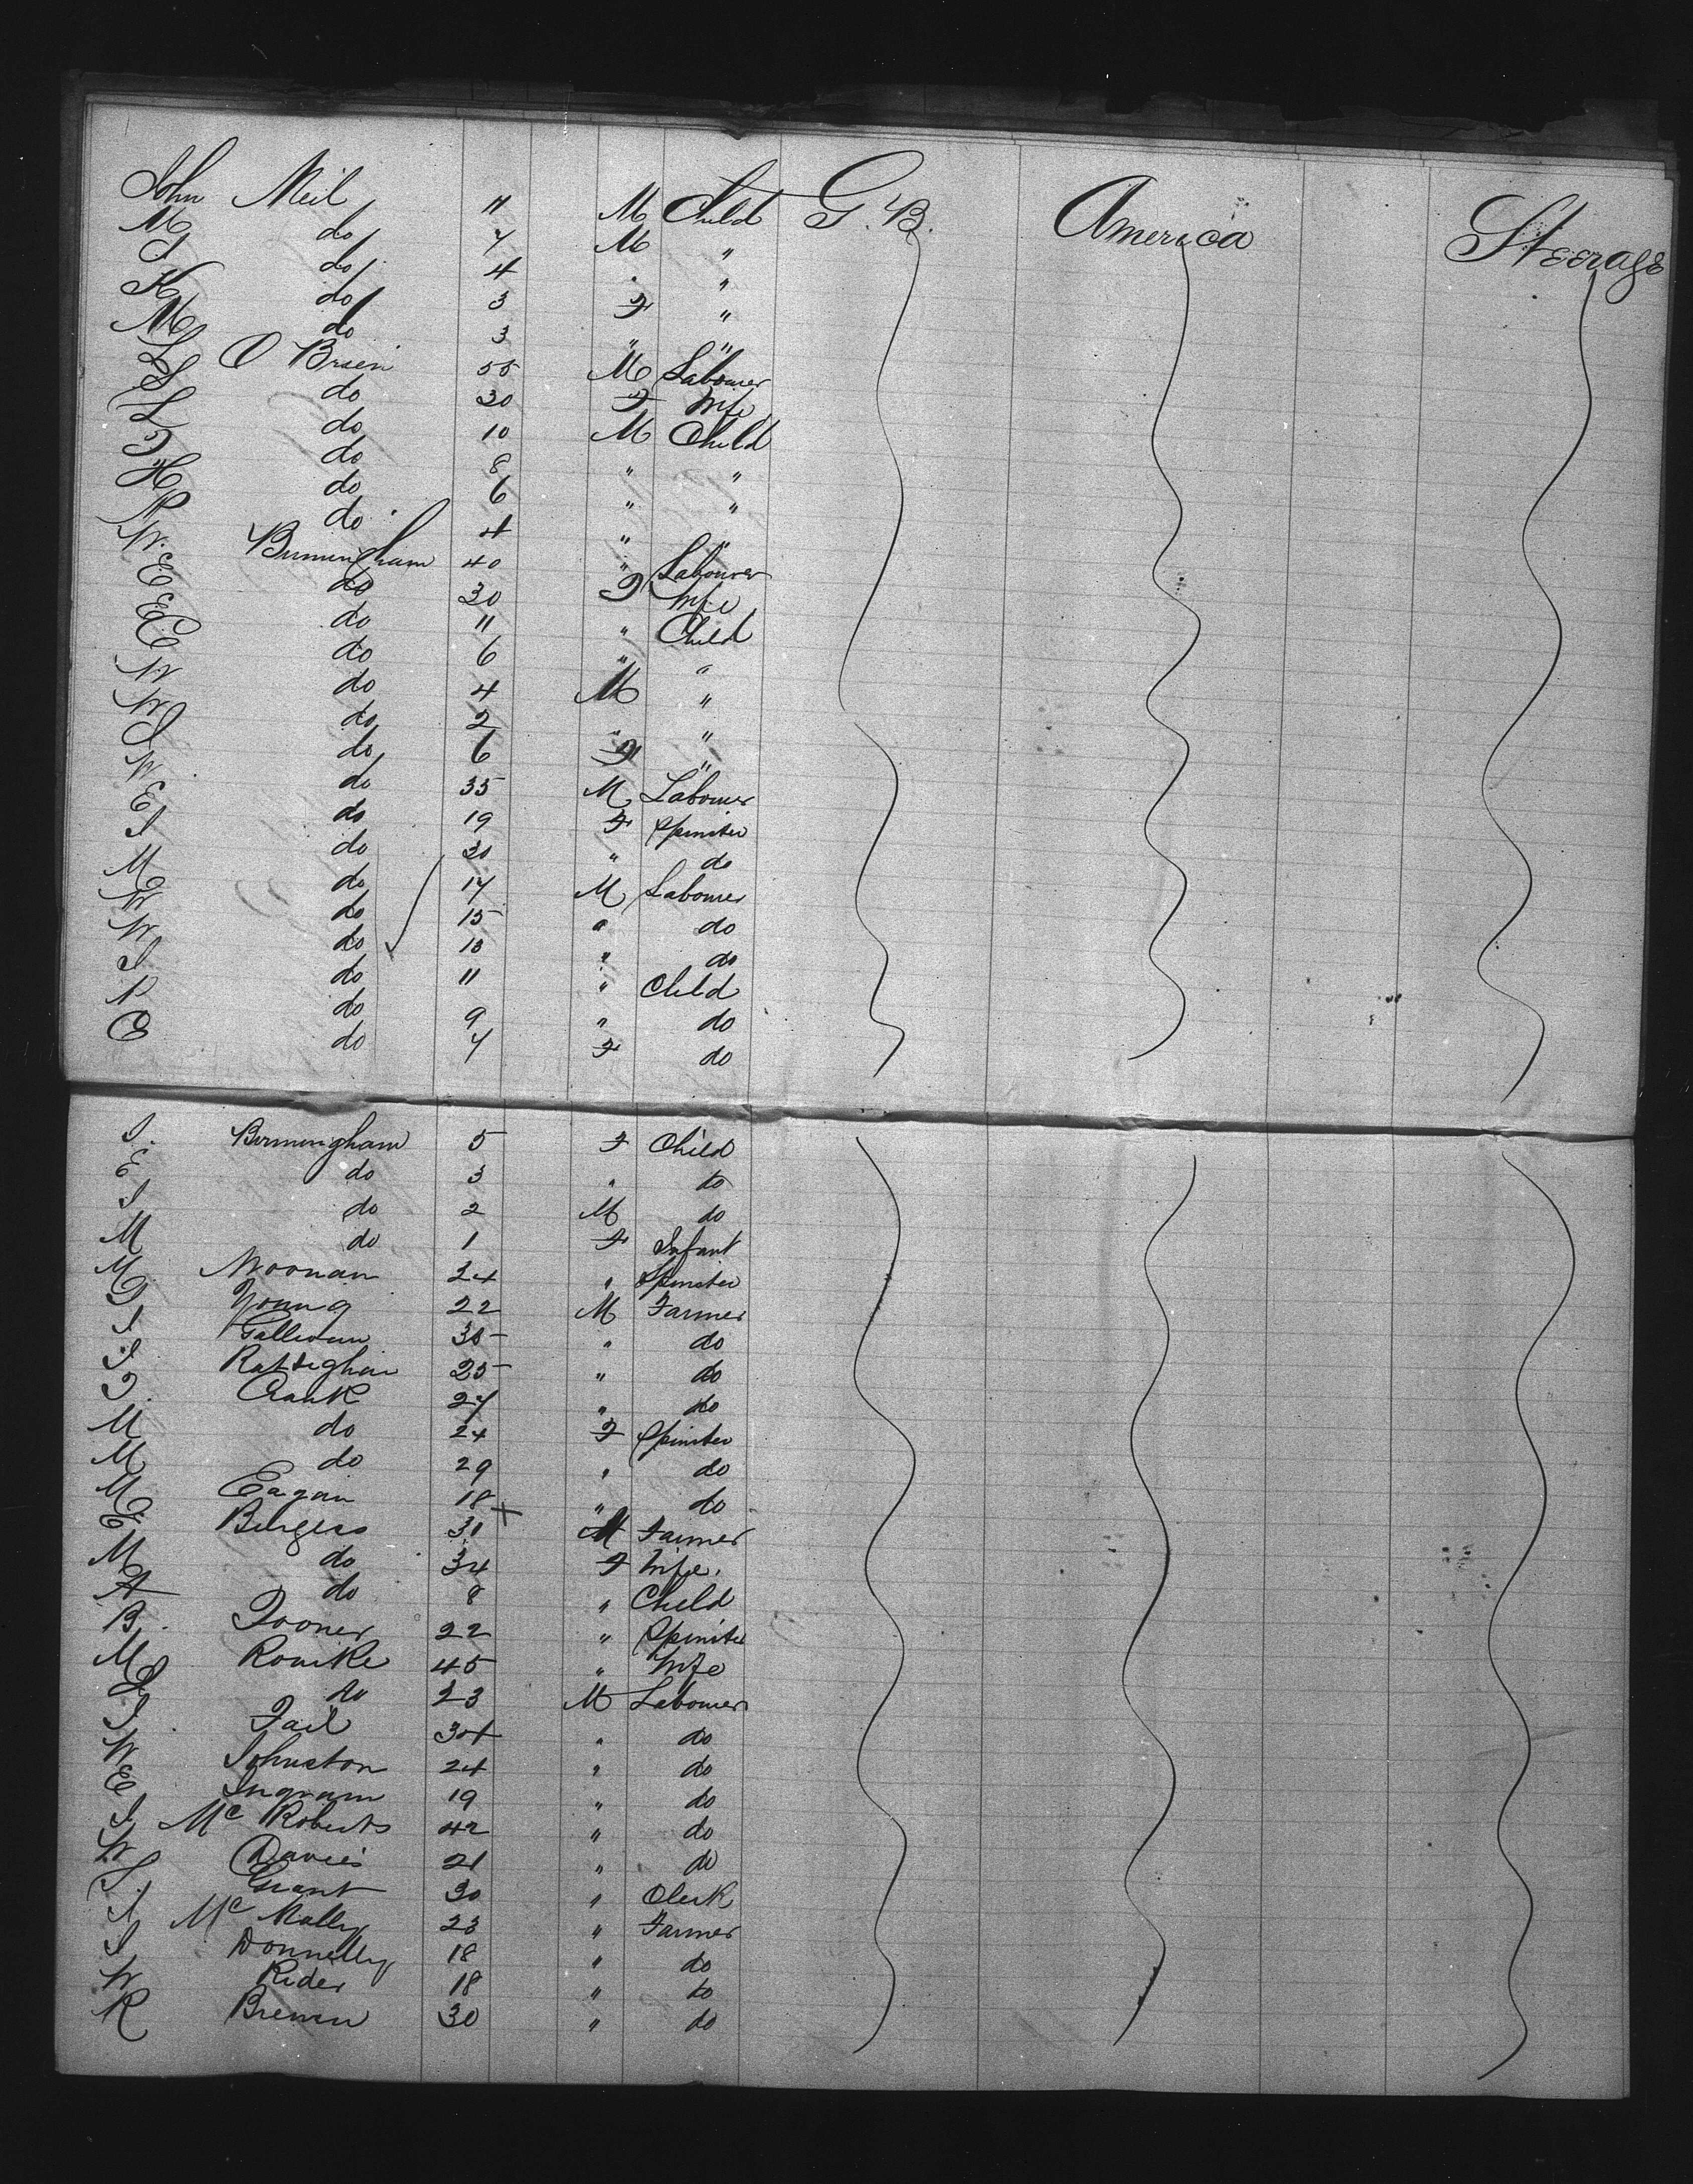 John Neil 11 M Child G.B. America Steerage
M do 7 M "
J do 4 " "
K do 3 F "
M do 3 " "
L O Brien 55 M Labourer
S do 30 F Wife
L do 10 M Child
J do 8 " "
H do 6 " "
P do 4 " "
W. Birmingham 40 " Labourer
E do 30 F Wife
E do 11 " Child
E do 6 " "
W do 4 M "
W do 2 " "
S do 6 F "
W do 35 M Labourer
E do 19 F Spinster
J do 20 " do
M do 17 M Labourer
W do 15 " do
W do 10 " do
J do 11 " Child
P do 9 " do
E do 7 F do
J. Birmingham 5 F Child
E do 3 " do
J do 2 M do
M do 1 F Infant
M Noonan 24 " Spinster
J Young 22 M Farmer
J 30 " do
J Ratsighan 25 " do
J. Crank 27 " do
M do 24 F Spinster
M do 29 " do
M Eagan 18 " do
E Burgess 31 M Farmer
M do 34 F Wife.
A do 8 " Child
B. Tooner 22 " Spinster
M Rourke 45 " Wife
do 23 M Labourer
J. Tail 30 " do
W Johnston 24 " do
E Ingram 19 " do
J Mc Roberts 42 " do
W Davies 21 " do
S. Grant 30 " Clerk
J Mc Nally 23 " Farmer
J Donnelly 18 " do
W Rider 18 " do
R Brewin 30 " do